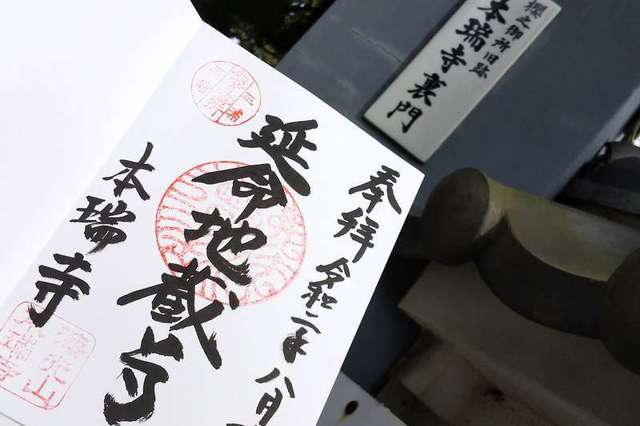 櫻之御所旧跡
本瑞寺裏門
奉拝
令和二年八月
延命地蔵尊
本瑞寺